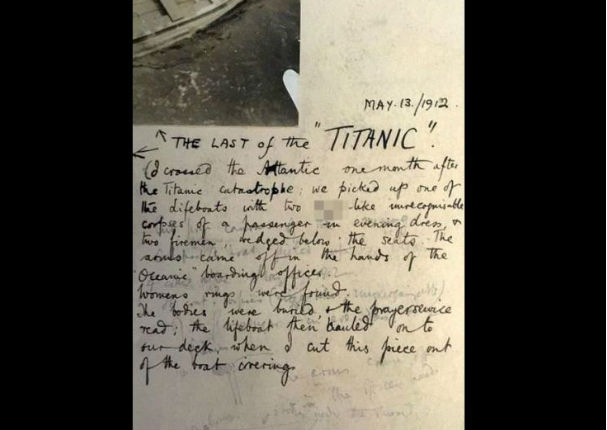 MAY.13./1912.
THE LAST of the "TITANIC".
(I crossed the Atlantic one month after
the Titanic catastrophe; we picked up one of
the lifeboats with two like unrecognisable
corpses of a passenger in evening dress, &
two firemen, wedged below the seats. The
arms came off in the hands of the
"Oceanic" boarding officer.
Womens rings were found.
The bodies were buried, & the prayerservice
read; the lifeboat then hauled on to
our deck, when I cut this piece out
of the boat covering.